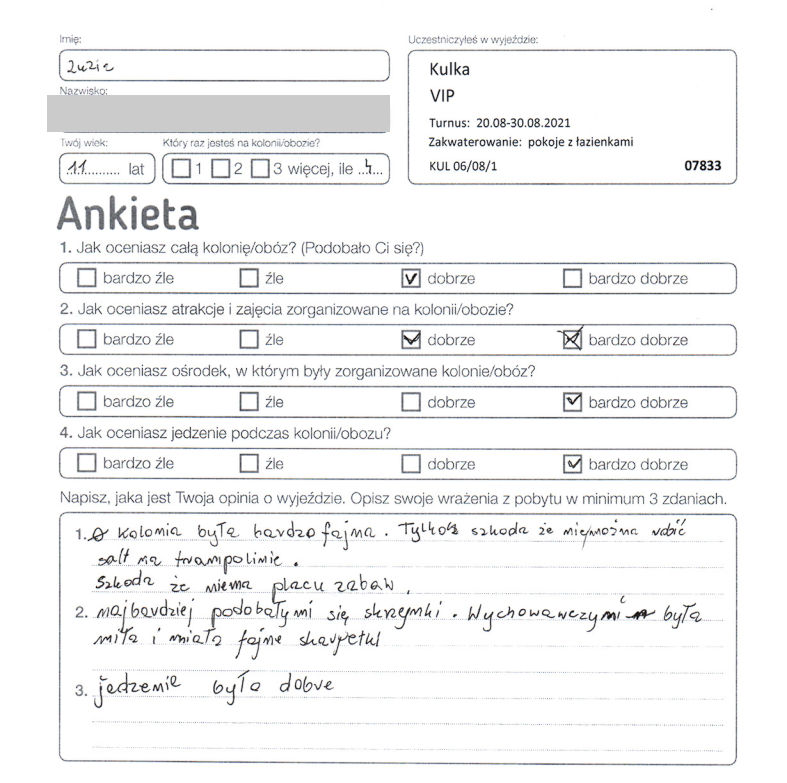 Imię:
Zuzia
Nazwisko:
Twój wiek:
11 lat
Który raz jesteś na kolonii/obozie?
1 2 3 więcej, ile 4
Uczestniczyłeś w wyjeździe:
Kulka
VIP
Turnus: 20.08-30.08.2021
Zakwaterowanie: pokoje z łazienkami
KUL 06/08/1 07833
Ankieta
1. Jak oceniasz całą kolonię/obóz? (Podobało Ci się?)
bardzo źle źle dobrze bardzo dobrze
2. Jak oceniasz atrakcje i zajęcia zorganizowane na kolonii/obozie?
bardzo źle źle dobrze bardzo dobrze
3. Jak oceniasz ośrodek, w którym były zorganizowane kolonie/obóz?
bardzo źle źle dobrze bardzo dobrze
4. Jak oceniasz jedzenie podczas kolonii/obozu?
bardzo źle źle dobrze bardzo dobrze
Napisz, jaka jest Twoja opinia o wyjeździe. Opisz swoje wrażenia z pobytu w minimum 3 zdaniach.
1. Kolonia była bardzo fajna. Tylko szkoda że niemożna robić
salt na trampolinie.
Szkoda że niema placu zabaw.
2. najbardziej podobały mi się skrzynki. Wychowawczyni była
miła i miała fajne skarpetki
3. jedzenie było dobre